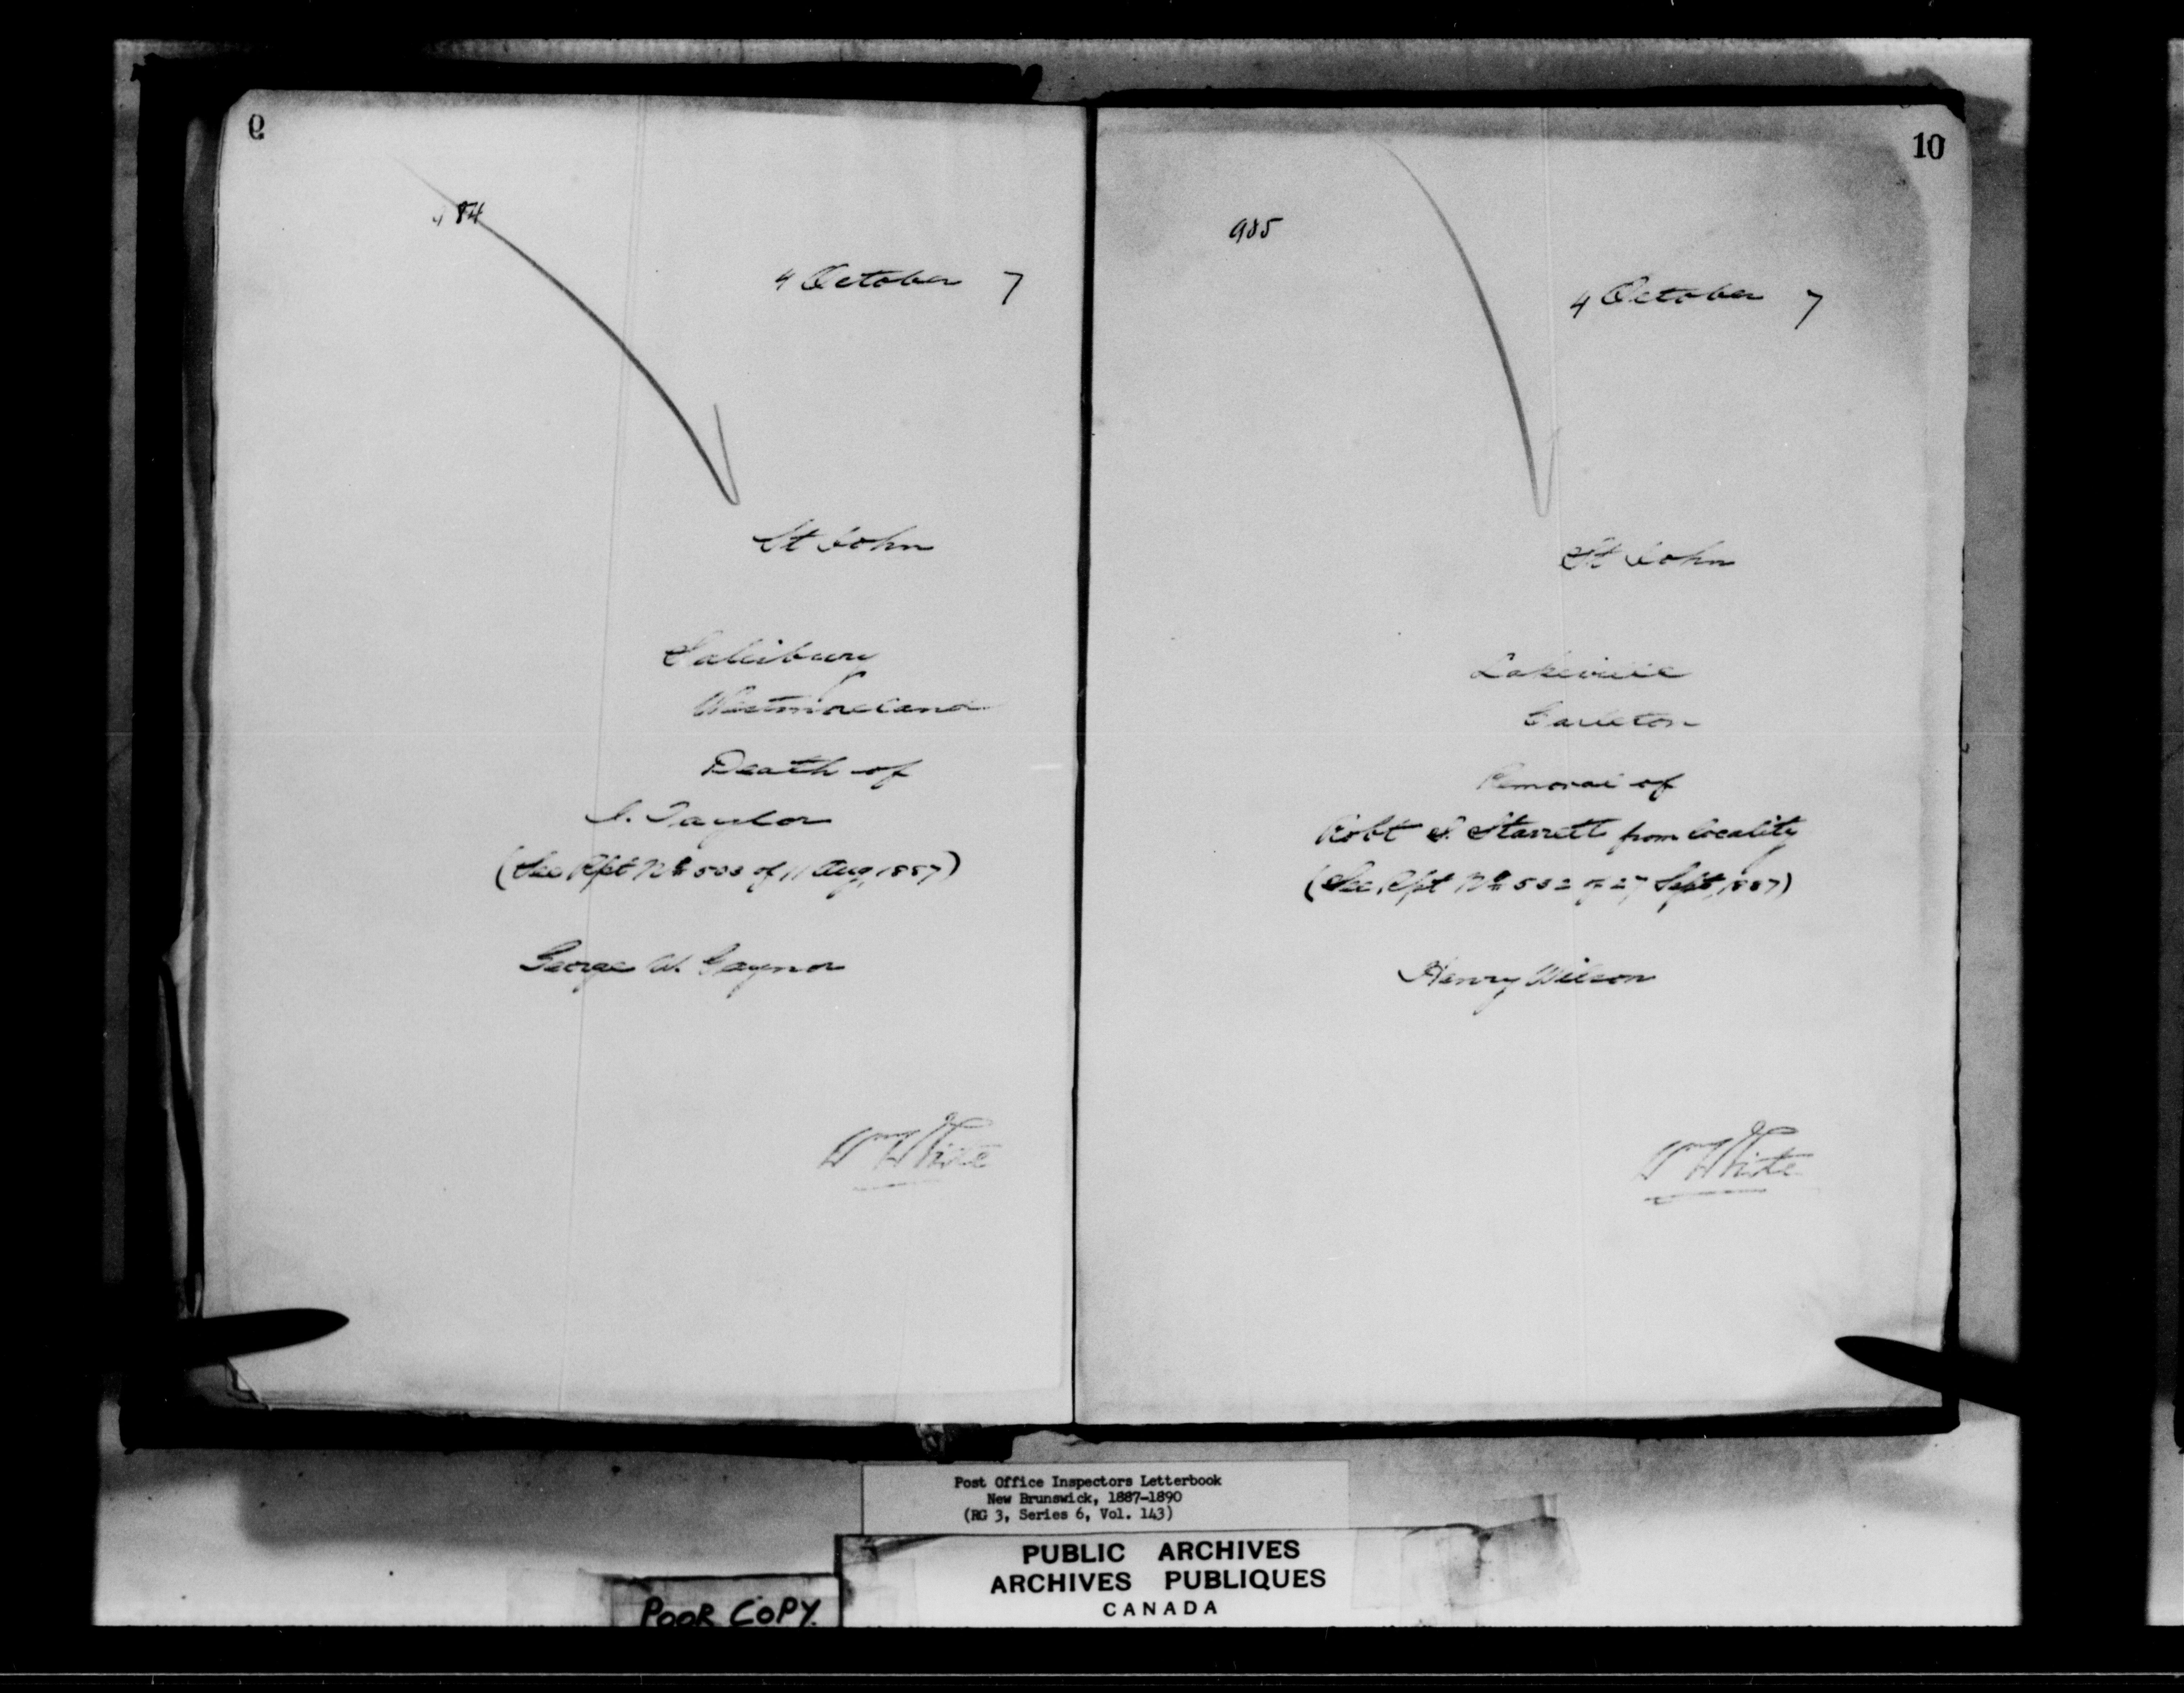 9
984
4 October 7
St John
Salisbury
Westmoreland
Death of
I. Taylor
(See Rpt No 503 of 11 Aug, 1887)
George W. Gaynor
Wm White
10
985
4 October 7
St John
Lakeville
Carleton
Removal of
Robt S. Starrett from locality
(See Rpt No 532 of 27 Sept, 1887)
Henry Wilson
Wm White
Post Office Inspectors Letterbook
New Brunswick, 1887-1890
(RG 3, Series 6, Vol. 143)
PUBLIC ARCHIVES
ARCHIVES PUBLIQUES
CANADA
POOR COPY.